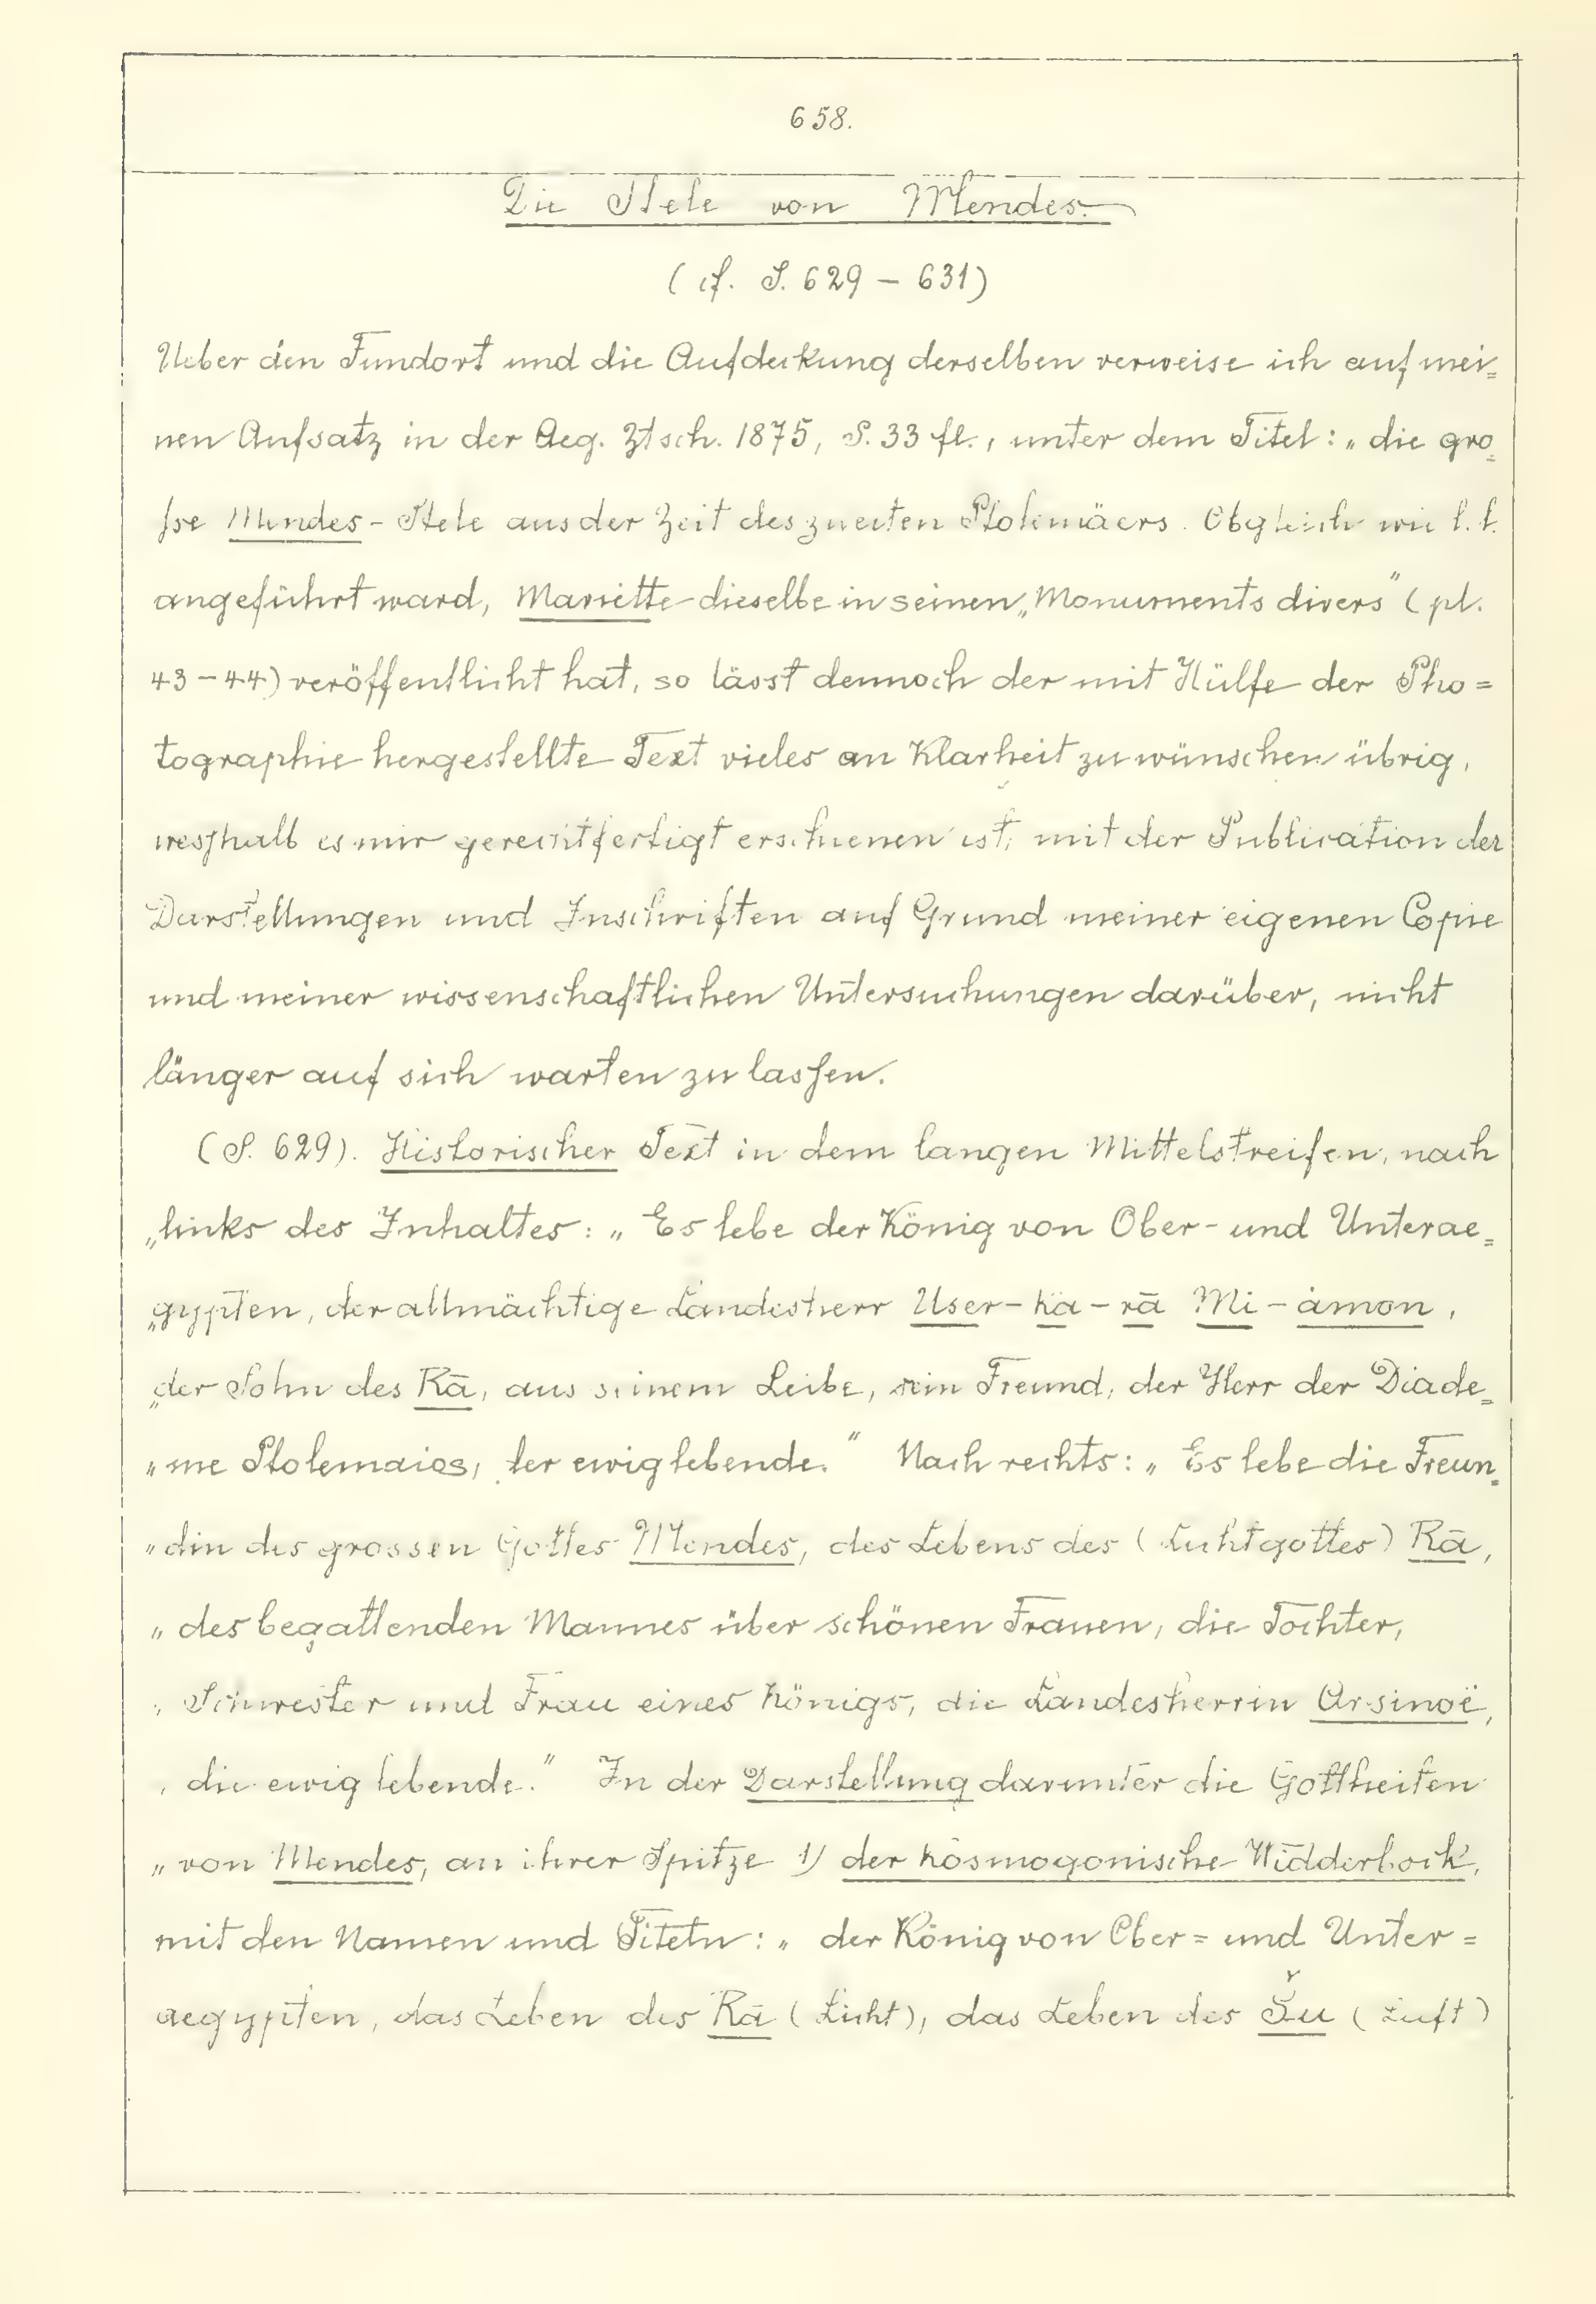 658.
Die Stele von Mendes.
(cf. S. 629 – 631)
Ueber den Fundort und die Aufdeckung derselben verweise ich auf mei=
nen Aufsatz in der Aeg. Ztsch. 1875, S. 33 fl., unter dem Titel: „die gro=
ſse Mendes-Stele aus der Zeit des zweiten Ptolemäers. Obgleich wie l. l.
angeführt ward, Mariette dieselbe in seinen „Monuments divers" (pl.
43–44) veröffentlicht hat, so lässt dennoch der mit Hülfe der Pho=
tographie hergestellte Text vieles an Klarheit zu wünschen übrig,
weſshalb es mir gerechtfertigt erschienen ist, mit der Publication der
Darstellungen und Inschriften auf Grund meiner eigenen Copie
und meiner wissenschaftlichen Untersuchungen darüber, nicht
länger auf sich warten zu laſsen.
(S. 629). Historischer Text in dem langen Mittelstreifen, nach
„links des Inhaltes: „Es lebe der König von Ober- und Unterae=
„gypten, der allmächtige Landesherr User-ka-rā Mi-amon,
„der Sohn des Rā, aus seinem Leibe, sein Freund, der Herr der Diade=
„me Ptolemaios, der ewig lebende." Nach rechts: „Es lebe die Freun=
„din des grossen Gottes Mendes, des Lebens des (Lichtgottes) Rā,
„des begattenden Mannes über schönen Frauen, die Tochter,
„Schwester und Frau eines Königs, die Landesherrin Arsinoë,
„die ewig lebende." In der Darstellung darunter die Gottheiten
„von Mendes, an ihrer Spitze 1) der kosmogonische Widderbock,
mit den Namen und Titeln: „der König von Ober= und Unter=
aegypten, das Leben des Rā (Licht), das Leben des Šu (Luft)